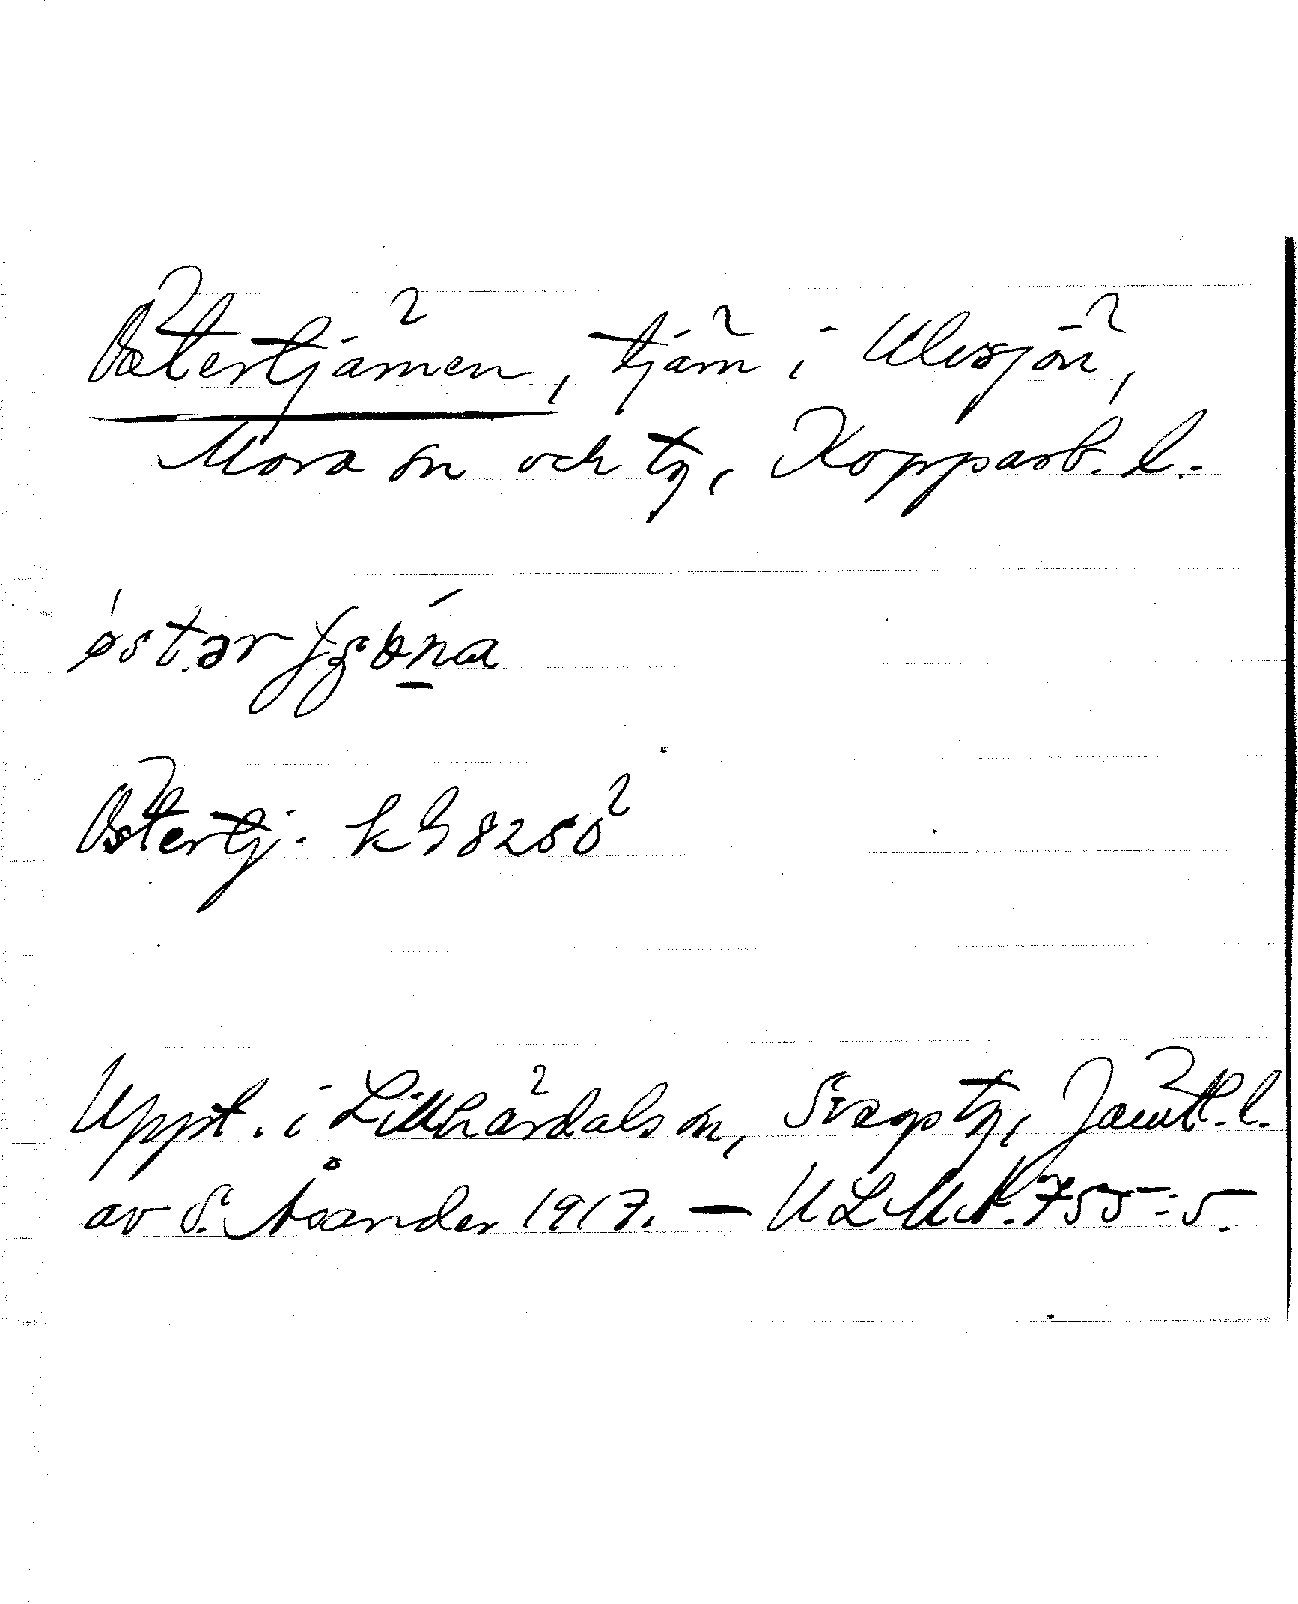 Östertjärnen, tjärn i Ulvsjön,
Mora sn och tg, Kopparb. l.
östər
Östertj. kg 8250
Uppt. i Lillhärdals sn, Svegs tg, Jämtl. l.
av S. Åsander 1917. — ULMA. 755:5.